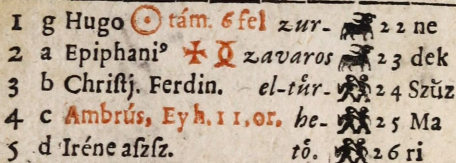 1 g Hugo ☉ tám. 6 fel zur- 22 ne
2 a Epiphani⁹ zavaros 23 dek
3 b Chriſtj. Ferdin. el-tuͦr- 24 Szŭz
4 c Ambrús, Ey h. 11, or. he- 25 Ma
5 d Iréne aſzſz. toͦ. 26 ri